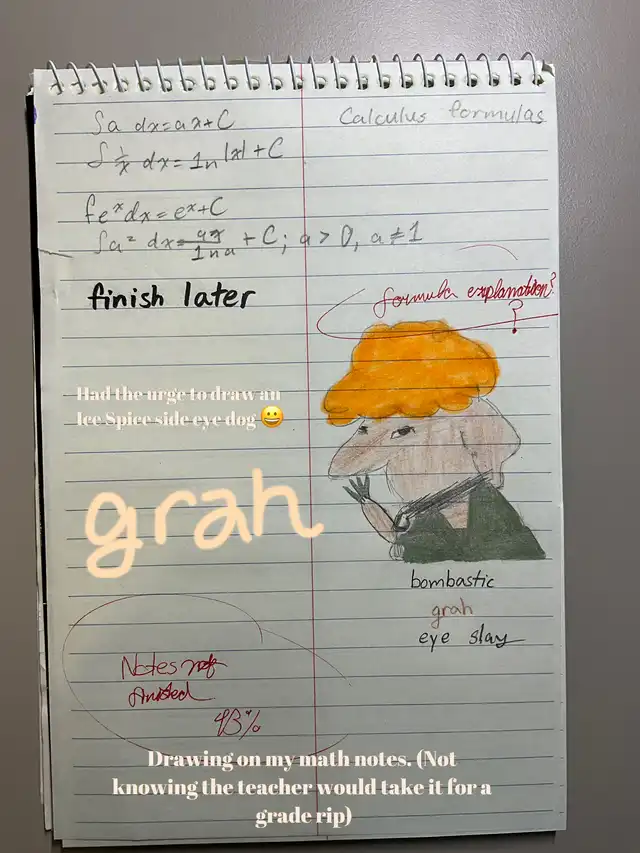 ∫a dx=ax+C
Calculus formulas
∫1/x dx=ln|x|+C
∫e^x dx=e^x+C
∫a^2 dx=a^x/ln a +C; a>0, a≠1
finish later
formula explanation?
?
Had the urge to draw an
Ice Spice side eye dog 😀
grah
bombastic
grah
eye slay
Notes not
finished
43%
Drawing on my math notes. (Not
knowing the teacher would take it for a
grade rip)